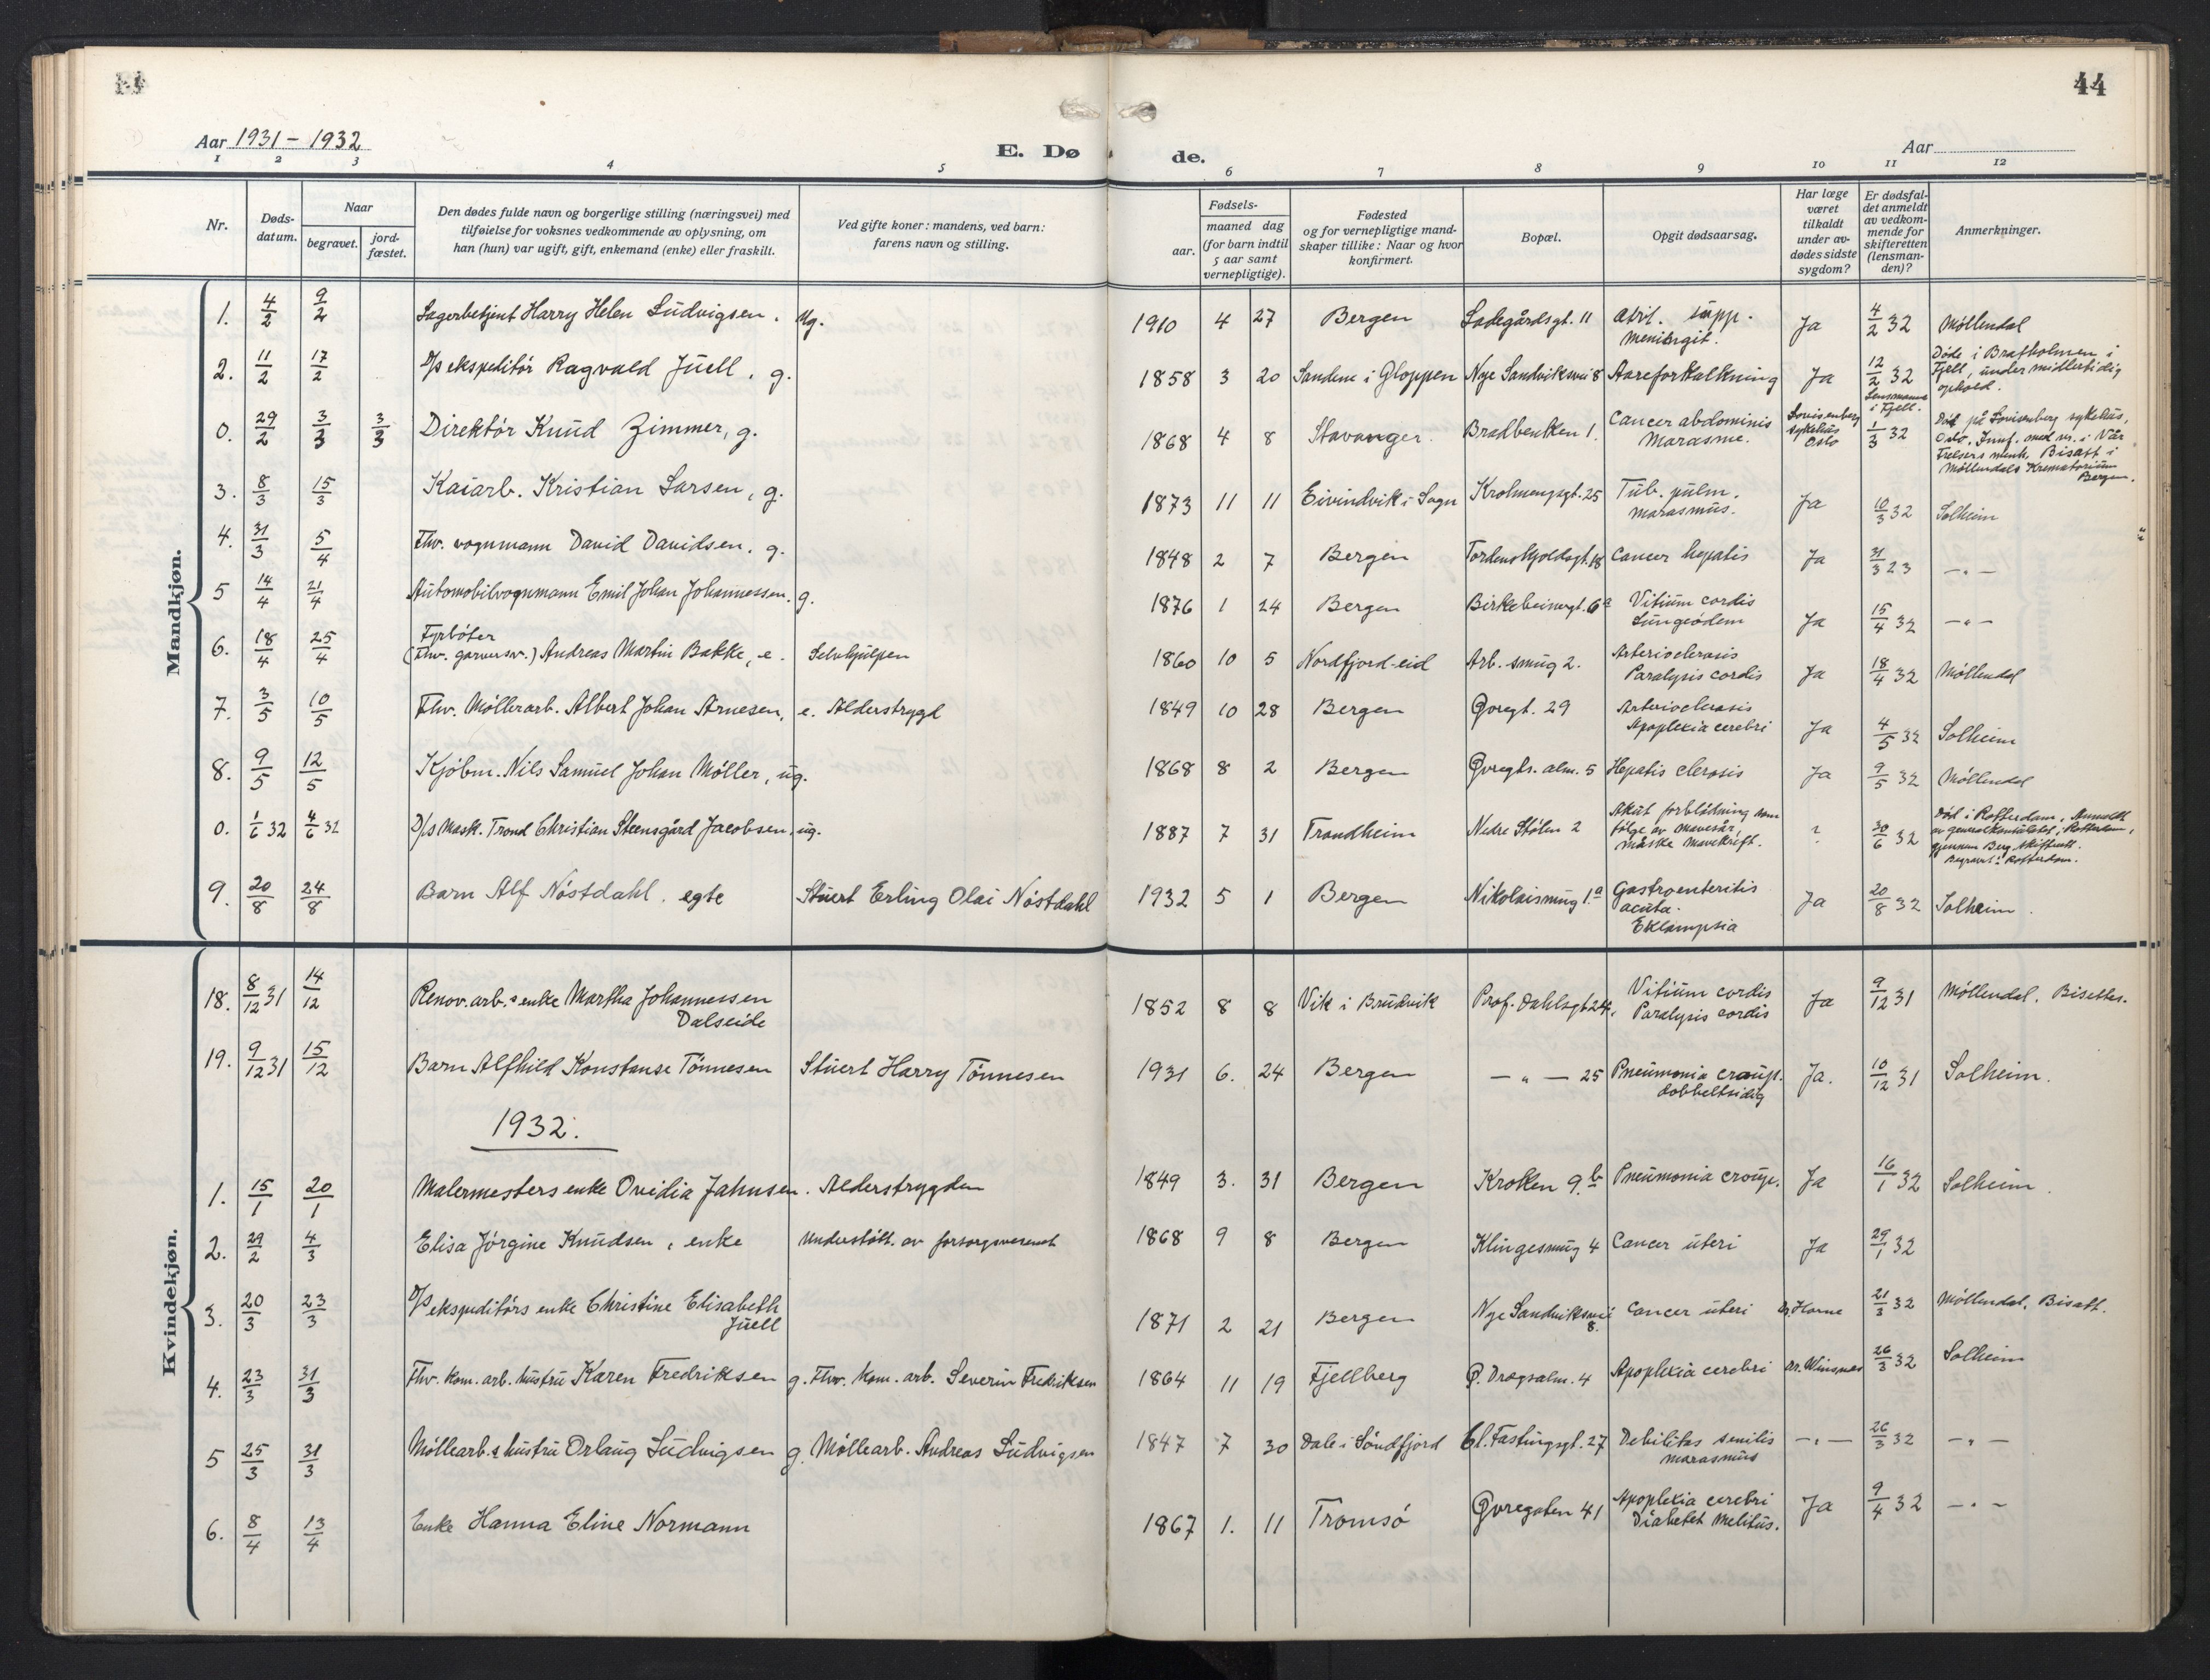 44
Aar 1931 – 1932
E. Døde.
Aar
1 2 3 4 5 6 7 8 9 10 11 12
Nr.
Døds-datum.
Naar
begravet.
jord-fæstet.
Den dødes fulde navn og borgerlige stilling (næringsvei) med tilføielse for voksnes vedkommende av oplysning, om han (hun) var ugift, gift, enkemand (enke) eller fraskilt.
Ved gifte koner: mandens, ved barn: farens navn og stilling.
Fødsels-
aar.
maaned dag
(for barn indtil 5 aar samt vernepligtige).
Fødested og for vernepligtige mandskaper tillike: Naar og hvor konfirmert.
Bopæl.
Opgit dødsaarsag.
Har læge været tilkaldt under avdødes sidste sygdom?
Er dødsfaldet anmeldt av vedkommende for skifteretten (lensmanden)?
Anmerkninger.
Mandkjøn.
1. 4/2 9/2 Lagerbetjent Harry Helen Ludvigsen. ug. 1910 4 27 Bergen Ladegårdsgt. 11 supp. meningit. Ja 4/2 32 Møllendal
2. 11/2 17/2 D/s ekspeditør Ragvald Juell, g. 1858 3 20 Sandene i Gloppen Nye Sandviksvei 8 Aareforkalkning Ja 12/2 32 Lensmannen i Fjell. Døde i Bratholmen i Fjell, under midlertidig ophold.
0. 29/2 3/3 3/3 Direktør Knud Zimmer, g. 1868 4 8 Stavanger. Bradbenken 1. Cancer abdominis Marasme. Lovisenberg sykehus Oslo 1/3 32 Død på Lovisenberg sykehus, Oslo. Innf. med nr. i Vår Frelsers menh. Bisatt i Møllendals Krematorium Bergen.
3. 8/3 15/3 Kaiarb. Kristian Larsen, g. 1873 11 11 Eivindvik i Sogn Krohnengsgt. 25 Tub. pulm. marasmus. Ja 10/3 32 Solheim
4. 31/3 5/4 Fhv. vognmann David Davidsen. g. 1848 2 7 Bergen Tordenskjoldsgt. 18 Cancer hepatis Ja 31/3 23 — „ —
5 14/4 21/4 Automobilvognmann Emil Johan Johannessen. g. 1876 1 24 Bergen Birkebeinergt. 6a Vitium cordis Lungeødem Ja 15/4 32 — „ —
6. 18/4 25/4 Fyrbøter (Fhv. garversv.) Andreas Martin Bakke, e. Selvhjulpen 1860 10 5 Nordfjord-eid Arb. smug 2. Arteriosclerosis Paralysis cordis Ja 18/4 32 Møllendal
7. 3/5 10/5 Fhv. Møllerarb. Albert Johan Arnesen, e. Alderstrygd 1849 10 28 Bergen Øvregt. 29 Arteriosclerosis Apoplexia cerebri Ja 4/5 32 Solheim
8. 9/5 12/5 Kjøbm. Nils Samuel Johan Møller, ug. 1868 8 2 Bergen Øvregts. alm. 5 Hepatis clerosis Ja 9/5 32 Møllendal
0. 1/6 32 4/6 32 D/s Mask. Trond Christian Steensgård Jacobsen, ug. 1887 7 31 Trondheim Nedre Stølen 2 Akut forblødning som følge av mavesår, måske mavekreft. ? 30/6 32 Død i Rotterdam. Anmeldt av generalkonsulatet, Rotterdam, gjennem Berg. skifterett. Begravet i Rotterdam.
9. 20/8 24/8 Barn Alf Nøstdahl. egte Stuert Erling Olai Nøstdahl 1932 5 1 Bergen Nikolaismug 1.a Gastroenteritis acuta. Eklampsia Ja 20/8 32 Solheim.
Kvindekjøn.
18. 8/12 31 14/12 Renov. arb.s enke Martha Johannessen Dalseide 1852 8 8 Vik i Bruvik Prof. Dahlsgt 24, Vitium cordis Paralysis cordis Ja 9/12 31 Møllendal. Bisettes.
19. 9/12 31 15/12 Barn Alfhild Konstanse Tønnesen Stuert Harry Tønnesen 1931 6. 24 Bergen — „ — 25 Pneumonia croup. dobbeltsidig Ja. 10/12 31 Solheim.
1932.
1. 15/1 20/1 Malermesters enke Ovidia Jahnsen. Alderstrygden 1849 3. 31 Bergen Kroken 9.b Pneumonia croup. Ja 16/1 32 Solheim.
2. 29/2 4/3 Elisa Jørgine Knudsen, enke Understøtt. av forsorgsvesenet 1868 9 8 Bergen Klingesmug 4 Cancer uteri Ja 29/1 32
3. 20/3 23/3 D/s ekspeditørs enke Christine Elisabeth Juell 1871 2 21 Bergen Nye Sandviksvei 8. Cancer uteri Dr. Horne 21/3 32 Møllendal. Bisatt.
4. 23/3 31/3 Fhv. kom. arb. hustru Karen Fredriksen g. Fhv. kom. arb. Severin Fredriksen 1864 11 19 Fjellberg Ø. Dragsalm. 4 Apoplexia cerebri Dr. Winsnes 26/3 32 Solheim
5 25/3 31/3 Møllearb.s hustru Orlaug Ludvigsen g. Møllearb. Andreas Ludvigsen 1847 7 30 Dale i Søndfjord Cl. Fastingsgt. 27 Debilitas senilis marasmus — „ — 26/3 32 — „ —
6. 8/4 13/4 Enke Hanna Eline Normann 1867 1. 11 Tromsø Øvregaten 41 Apoplexia cerebri Diabetes Melitus. Ja 9/4 32 — „ —